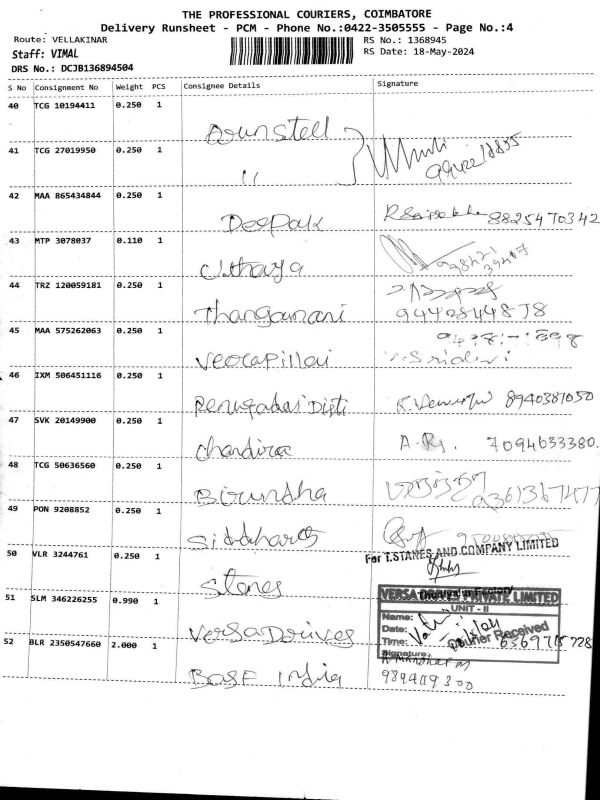 THE PROFESSIONAL COURIERS, COIMBATORE
Delivery Runsheet - PCM - Phone No.:0422-3505555 - Page No.:4
Route: VELLAKINAR
RS No.: 1368945
Staff: VIMAL
RS Date: 18-May-2024
DRS No.: DCJB136894504
S No Consignment No Weight PCS Consignee Details Signature
40 TCG 10194411 0.250 1 Arunstell
41 TCG 27019950 0.250 1 "
42 MAA 865434844 0.250 1 Deepak 8825470342
43 MTP 3078037 0.110 1 Uthaya
44 TRZ 120059181 0.250 1 Thangamani
45 MAA 575262063 0.250 1 Veocapillai V. Sridevi
46 IXM 506451116 0.250 1 8940381050
47 SVK 20149900 0.250 1 Chandiraa A. R. 7094633380.
48 TCG 50636560 0.250 1 Birundha 9361367477
49 PON 9208852 0.250 1 Siddharth
50 VLR 3244761 0.250 1 Stanes
For T.STANES AND COMPANY LIMITED
51 SLM 346226255 0.990 1 Versa Drives
VERSA DRIVES PRIVATE LIMITED
UNIT - II
Name:
Date:
Time:
Signature:
Courier Received
52 BLR 2350547660 2.000 1 Base India